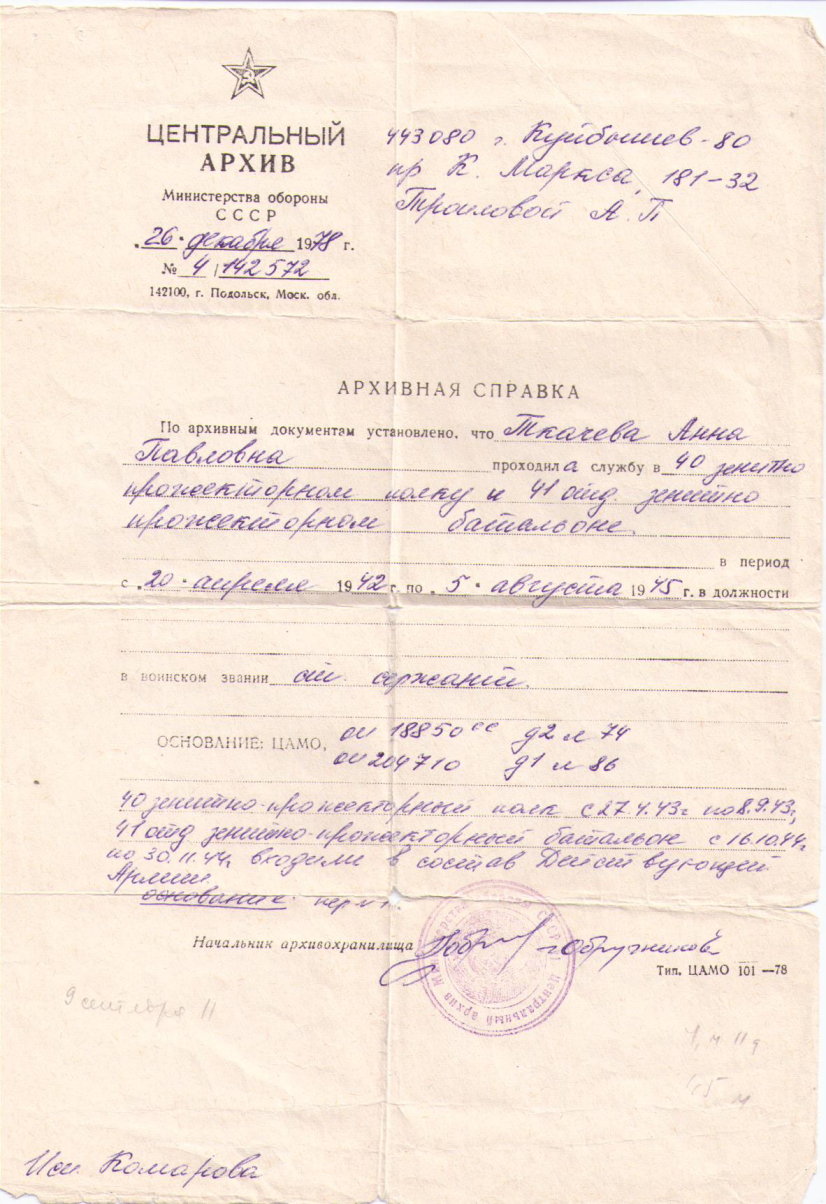 ЦЕНТРАЛЬНЫЙ
АРХИВ
Министерства обороны
СССР
„26" декабря 1978 г.
№ 4/142572
142100, г. Подольск, Моск. обл.
443080 г. Куйбышев-80
пр К. Маркса, 181-32
Траиловой А.П
АРХИВНАЯ СПРАВКА
По архивным документам установлено, что Ткачева Анна
Павловна проходила службу в 40 зенитно
прожекторном полку и 41 отд. зенитно
прожекторном батальоне.
в период
с „20" апреля 1942 г. по „5" августа 1945 г. в должности
в воинском звании ст. сержант.
ОСНОВАНИЕ: ЦАМО, оп 18850сс д2 л 74
оп 204710 д1 л 86
40 зенитно-прожекторный полк с 27.4.43г по 8.9.43г,
41 отд зенитно-прожекторный батальон с 16.10.44г
по 30.11.44г входили в состав Действующей
Армии
основание:
Начальник архивохранилища Обручников
Тип. ЦАМО 101—78
Центральный архив
9 сентября 11
Исп. Комарова